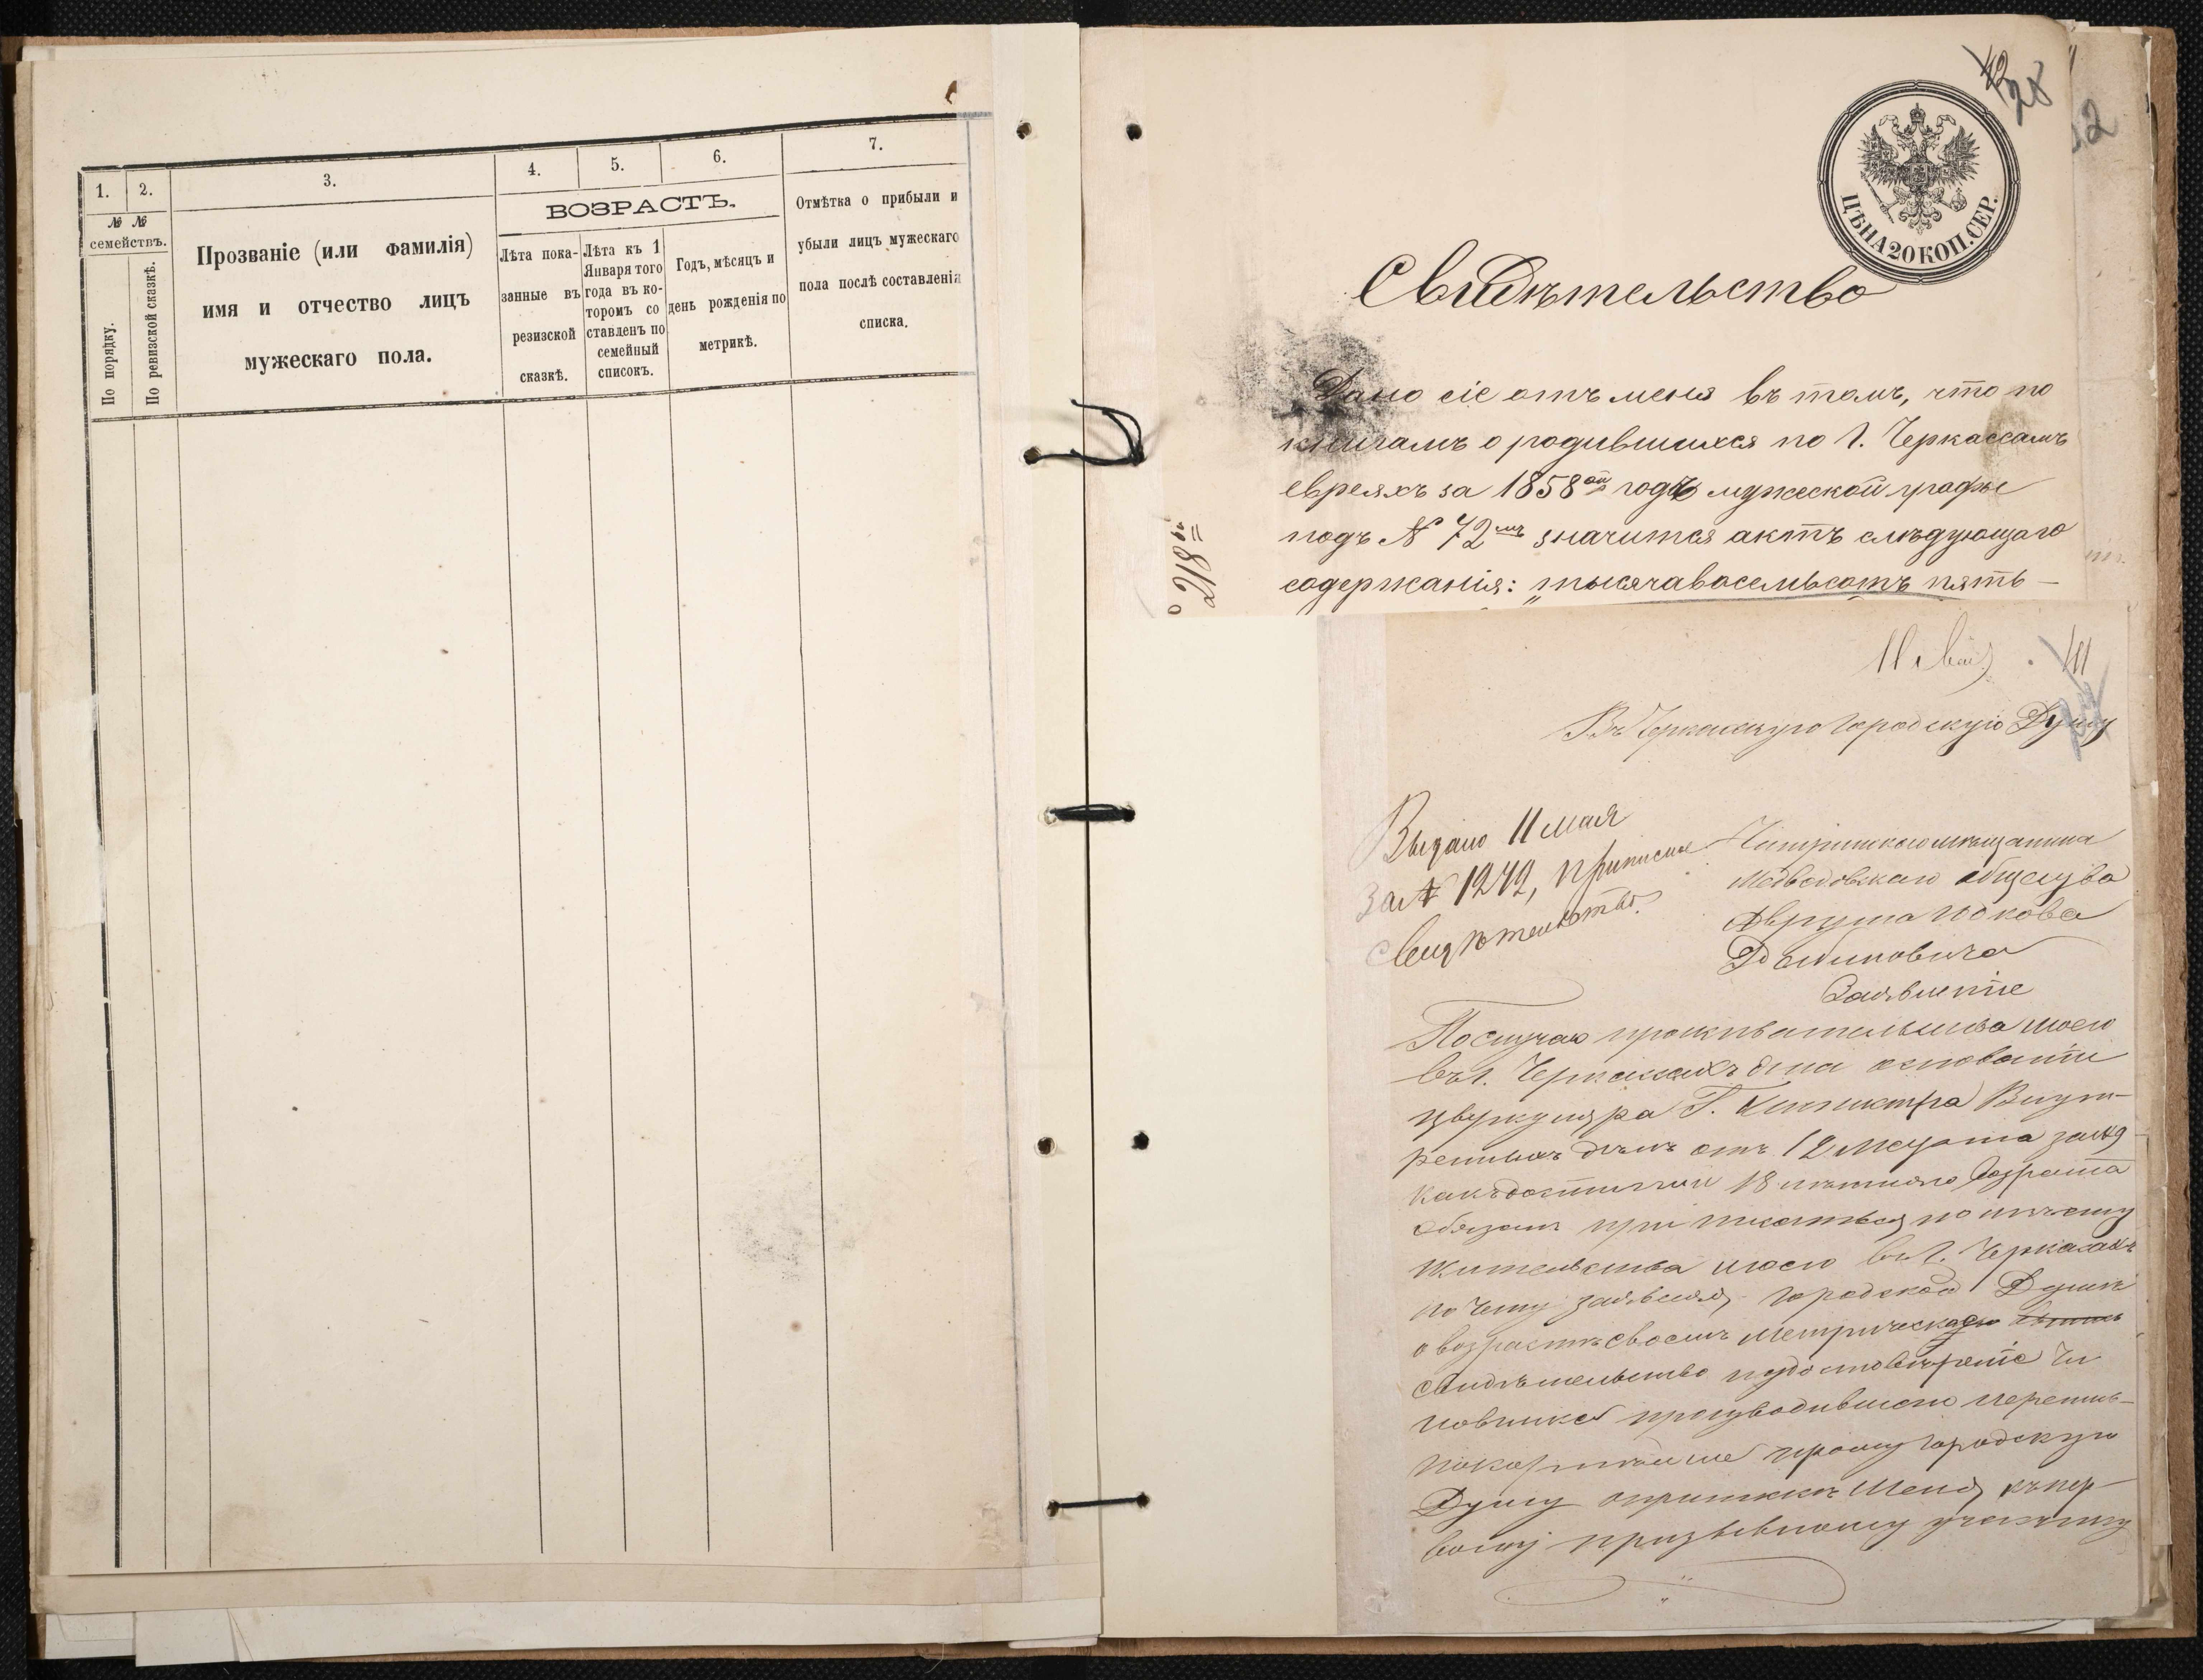 1.
2.
3.
4.
5.
6.
7.
№ №
семействъ.
По порядку.
По ревизской сказкѣ.
Прозваніе (или фамилія)
имя и отчество лицъ
мужескаго пола.
ВОЗРАСТЪ.
Лѣта пока-
занные въ
резизской
сказкѣ.
Лѣта къ 1
Января того
года въ ко-
торомъ со
ставленъ по
семейный
списокъ.
Годъ, мѣсяцъ и
день рожденія по
метрикѣ.
Отмѣтка о прибыли и
убыли лицъ мужескаго
пола послѣ составленія
списка.
28
ЦѢНА 20 КОП. СЕР.
Свидѣтельство
Дано сіе отъ меня въ томъ, что по
книгамъ о родившихся по г. Черкассамъ
евреяхъ за 1858ой годъ мужеской графы
подъ № 72мъ значится актъ слѣдующаго
содержанія: „тысячавосемьсотъ пять-
218
Въ Черкасскую городскую Думу
Выдано 11 мая
за № 1242, приписное
свидѣтельство.
мѣщанина
Медведовскаго общества
Аврума
Заявленіе
По случаю жительства моего
въ г. Черкассахъ и на основаніи
циркуляра Г. Министра Внут-
реннихъ дѣлъ отъ 12 за № 9
какъ достигшій 18 лѣтняго возраста
обязанъ приписаться по
жительства моего въ г. Черкасахъ
по чему заявляя городской Думѣ
о возрастѣ своемъ метрическое
свидѣтельство удостовѣреніе чи
новника производившаго перепись
покорнѣйше прошу городскую
Думу о припискѣ меня къ пер-
вому призывному участку